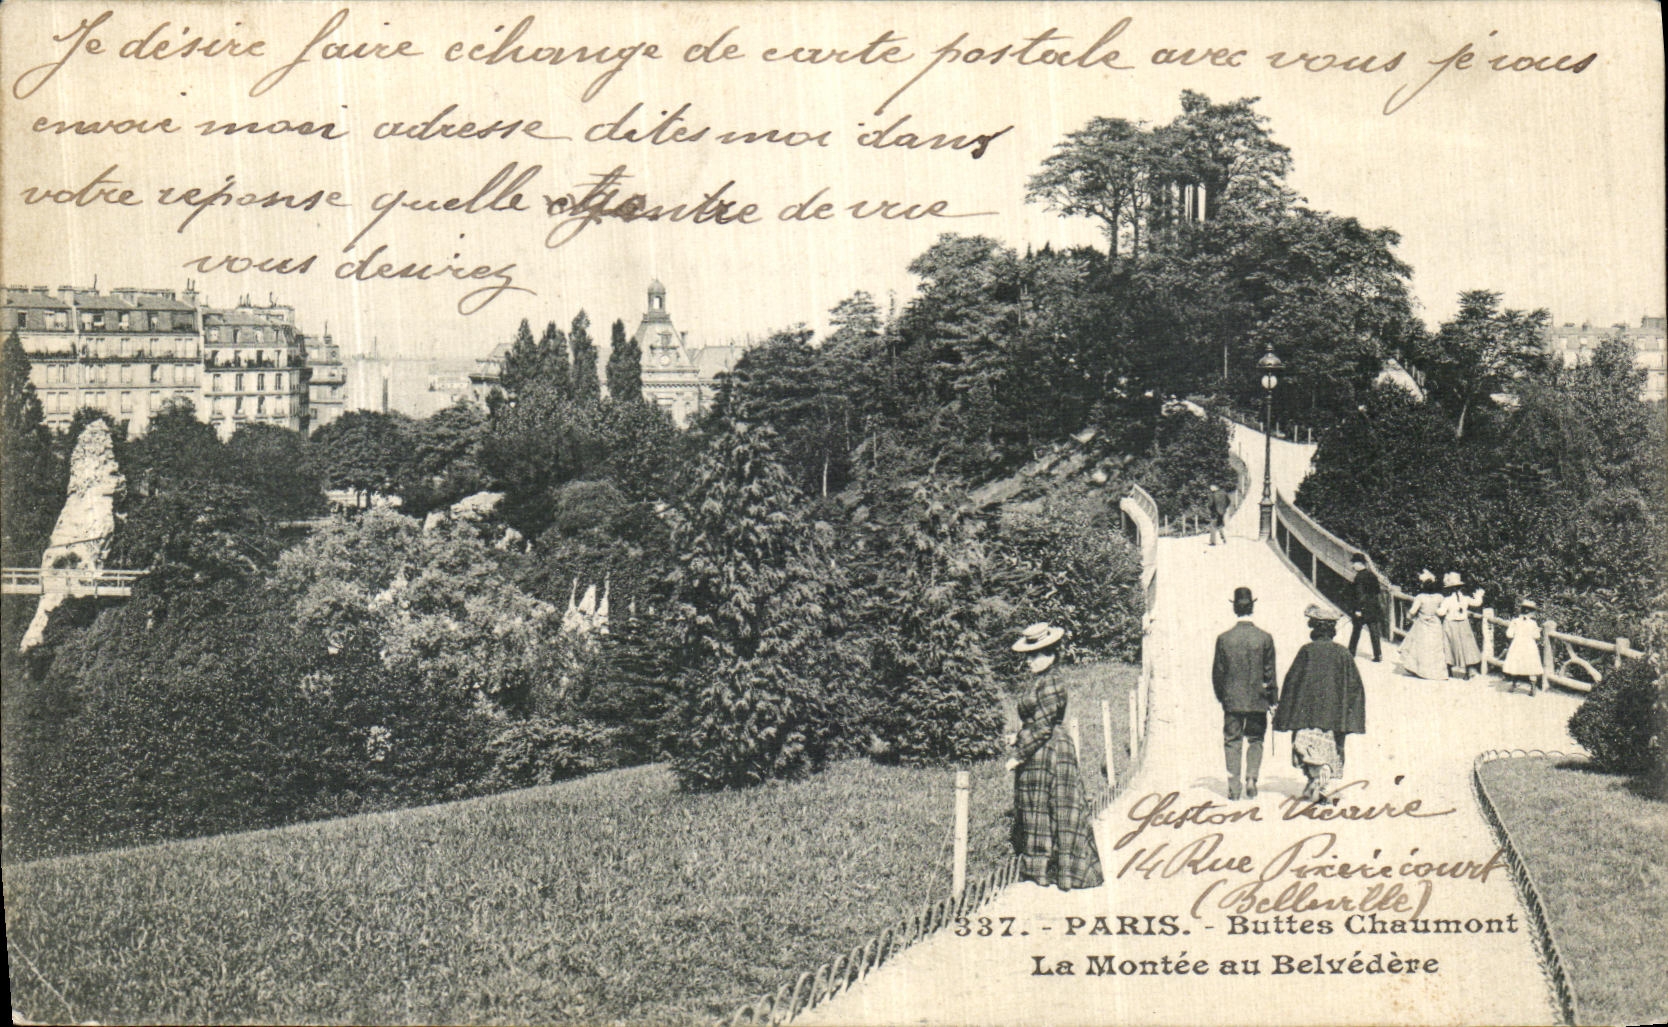 Je désire faire échange de carte postale avec vous je vous
envoie mon adresse dites moi dans
votre réponse quelle de vue
vous desirez
Gaston Vicaire
14 Rue Pixerécourt
(Belleville)
337. - PARIS. - Buttes Chaumont
La Montée au Belvédère